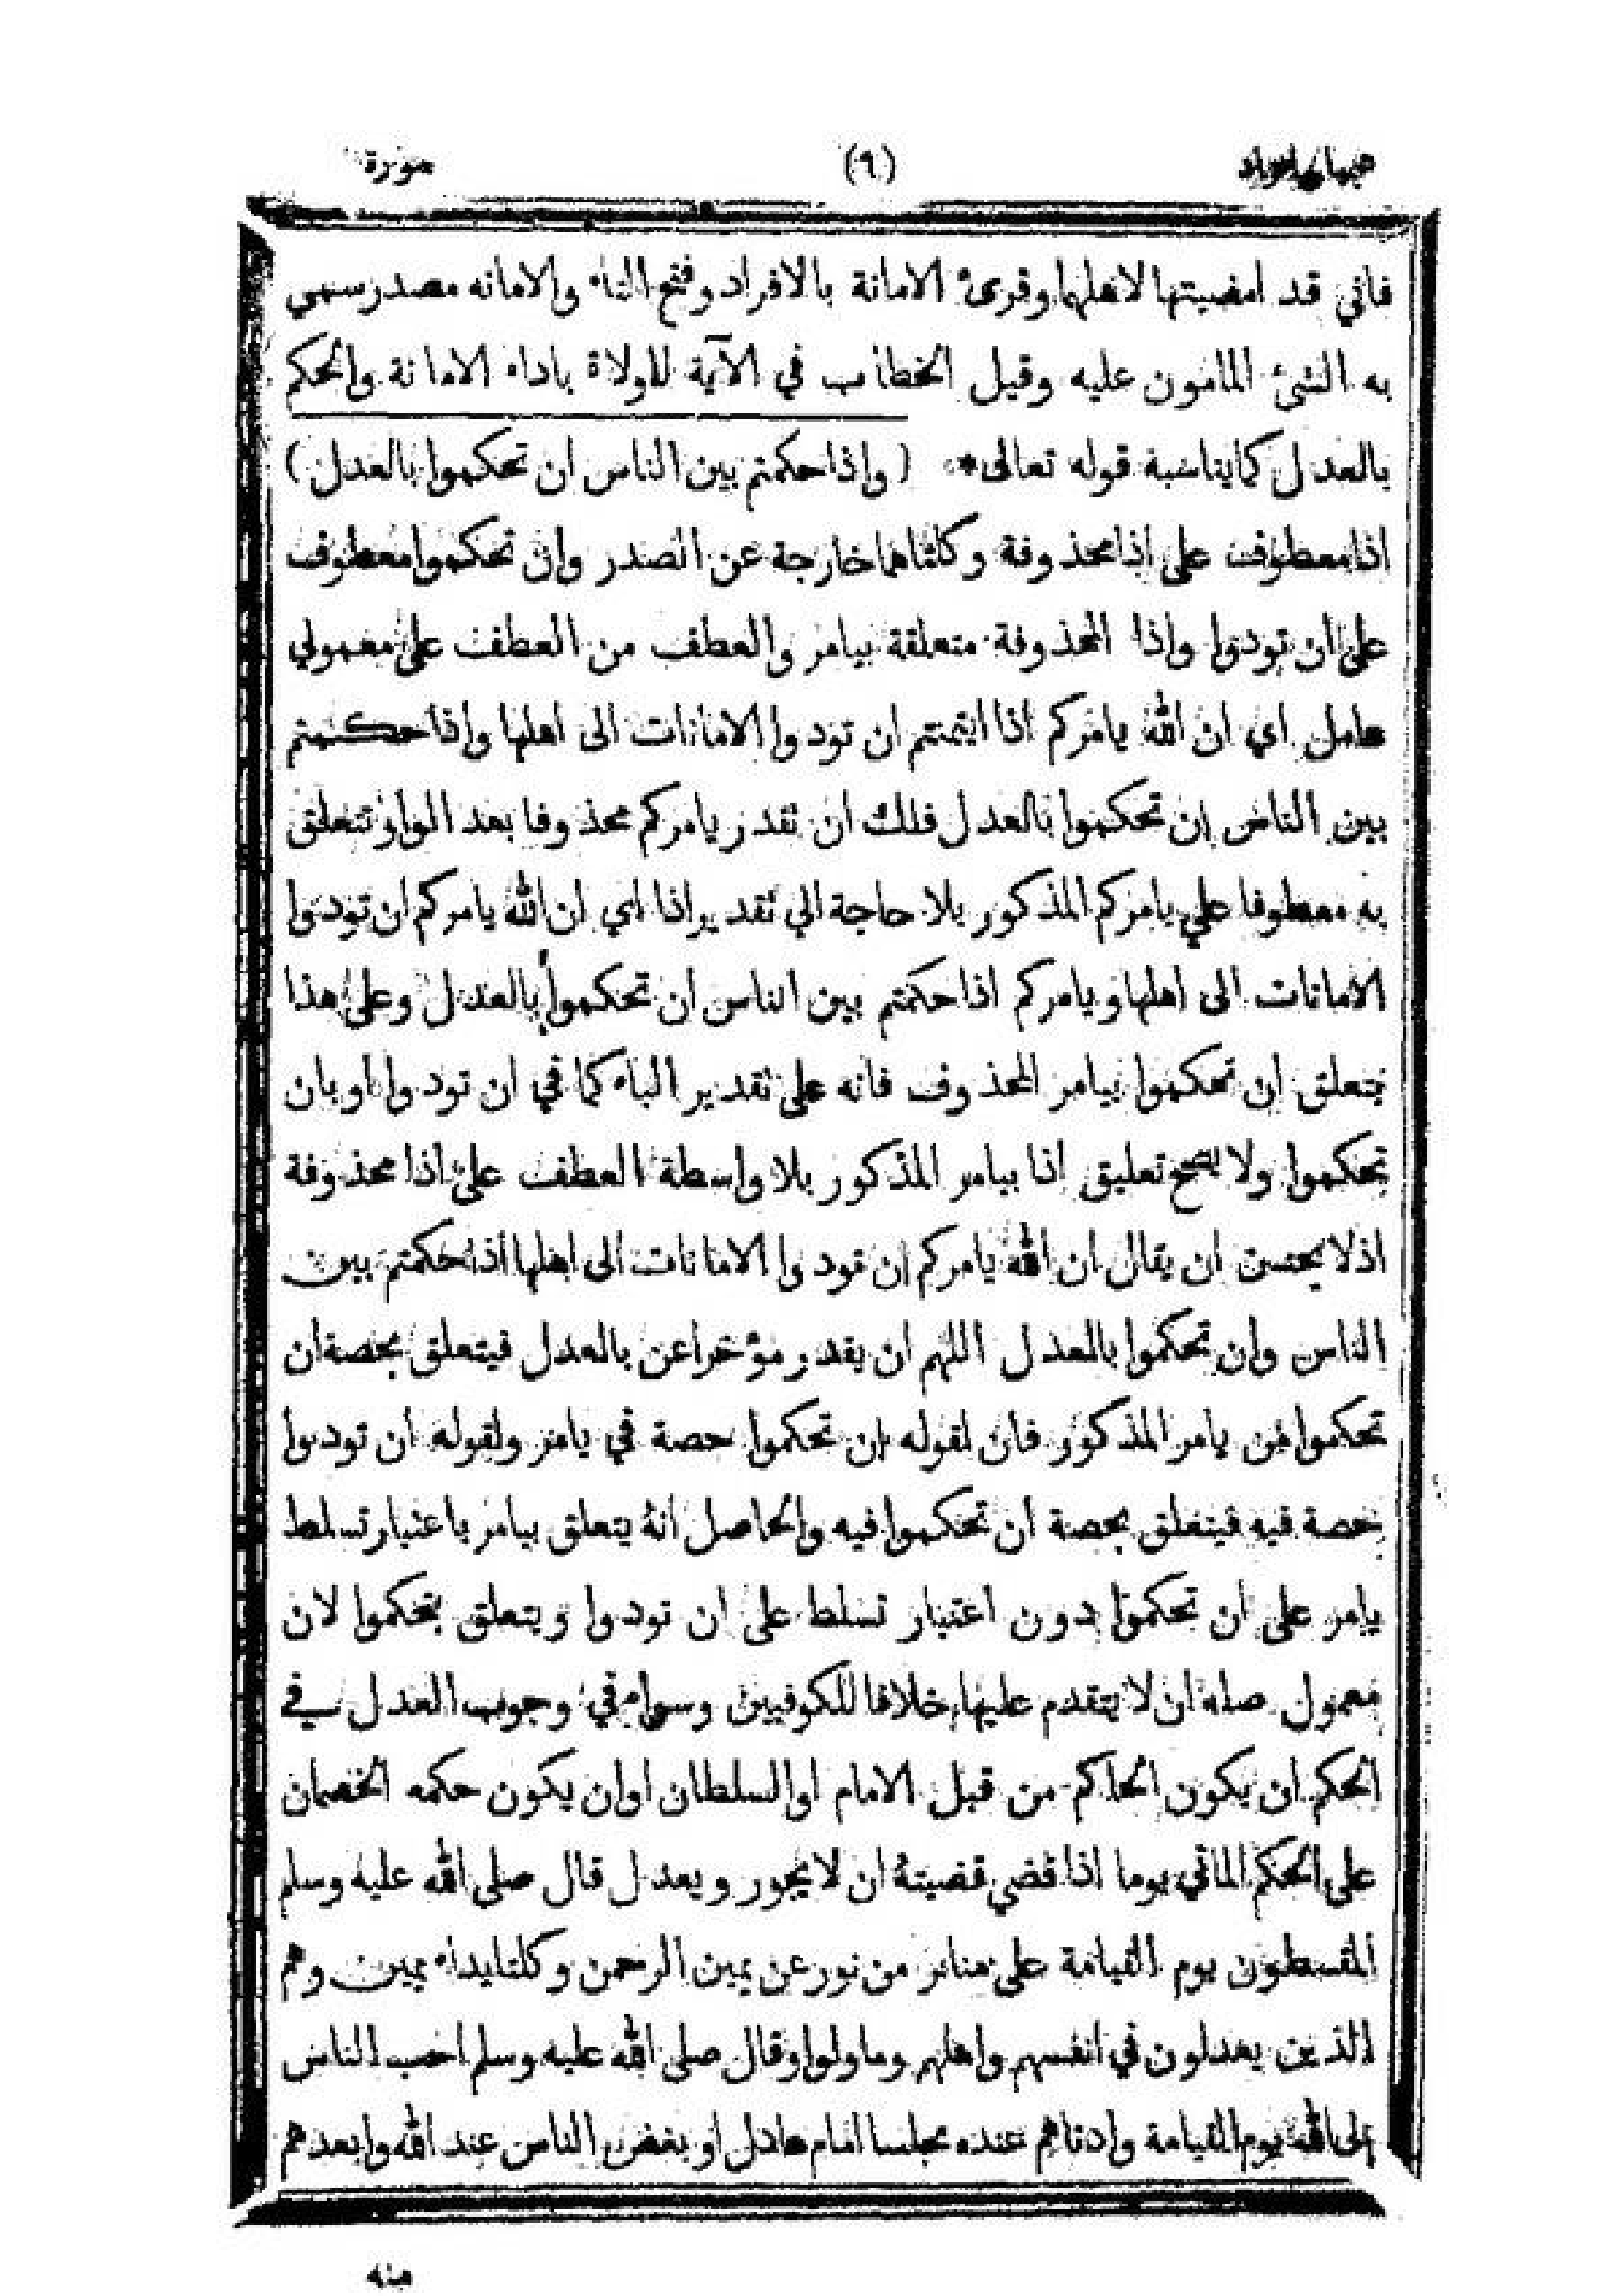 هيمان الزاد (٩) سورة
فاني قد امضيتها لاهلها وقرئ الامانة بالافراد وفتح التاء والامانه مصدر سمي
به الشئ المامون عليه وقيل الخطاب في الآية للولاة باداء الامانة والحكم
بالعدل كما يناسبة قوله تعالى* (واذا حكمتم بين الناس ان تحكموا بالعدل)
اذا معطوف على اذا محذوفة وكلتاهما خارجة عن الصدر وان تحكموا معطوف
على ان تودوا واذا المحذوفة متعلقة بيامر والعطف من العطف على معمولي
عامل اي ان الله يامركم اذا ايتمنتم ان تودوا الامانات الى اهلها واذا حكمتم
بين الناس ان تحكموا بالعدل فلك ان تقدر يامركم محذوفا بعد الواو تتعلق
به معطوفا علي يامركم المذكور بلا حاجة الي تقدير اذا اي ان الله يامركم ان تودوا
الامانات الى اهلها ويامركم اذا حكمتم بين الناس ان تحكموا بالعدل وعلى هذا
يتعلق ان تحكموا بيامر المحذوف فانه على تقدير الباء كما في ان تودوا او بان
تحكموا ولا يصح تعليق اذا بيامر المذكور بلا واسطة العطف على اذا محذوفة
اذ لا يحسن ان يقال ان الله يامركم ان تودوا الامانات الى اهلها اذا حكمتم بين
الناس وان تحكموا بالعدل اللهم ان يقدر مؤخرا عن بالعدل فيتعلق بحصة ان
تحكموا من يامر المذكور فان لقوله ان تحكموا حصة في يامر ولقوله ان تودوا
حصة فيه فيتعلق بحصة ان تحكموا فيه والحاصل انه يتعلق بيامر باعتبار تسلط
يامر على ان تحكموا دون اعتبار تسلط على ان تودوا ويتعلق بتحكموا لان
معمول صلة ان لا يتقدم عليها خلافا للكوفيين وسواء في وجوب العدل في
الحكم ان يكون الحاكم من قبل الامام او السلطان او ان يكون حكمه الخصمان
على الحكم يوما اذا قضي قضيته ان لا يجور ويعدل قال صلى الله عليه وسلم
المقسطون يوم القيامة على منابر من نور عن يمين الرحمن وكلتا يداه يمين وهم
الذين يعدلون في انفسهم واهلهم وما ولوا وقال صلى الله عليه وسلم احب الناس
الى الله يوم القيامة وادناهم عنده مجلسا امام عادل او بغض الناس عند الله وابعدهم
منه